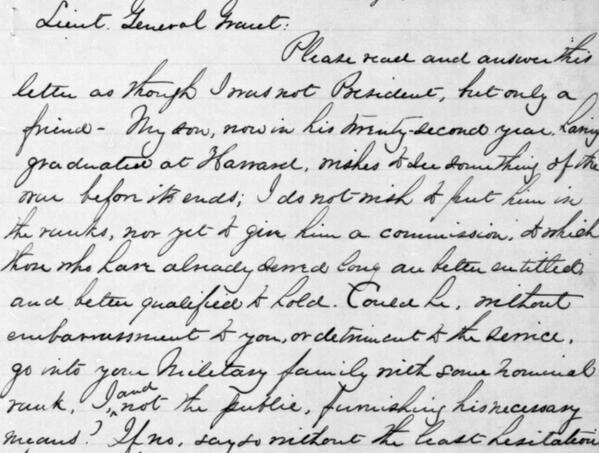 Lieut. General Grant:
Please read and answer this
letter as though I was not President, but only a
friend - My son, now in his twenty-second year, having
graduated at Harvard, wishes to see something of the
war before it ends; I do not wish to put him in
the ranks, nor yet to give him a commission, to which
those who have already served long are better entitled,
and better qualified to hold. Could he, without
embarrassment to you, or detriment to the service,
go into your Military family with some nominal
rank, I, and not the public, furnishing his necessary
means? If no, say so without the least hesitation